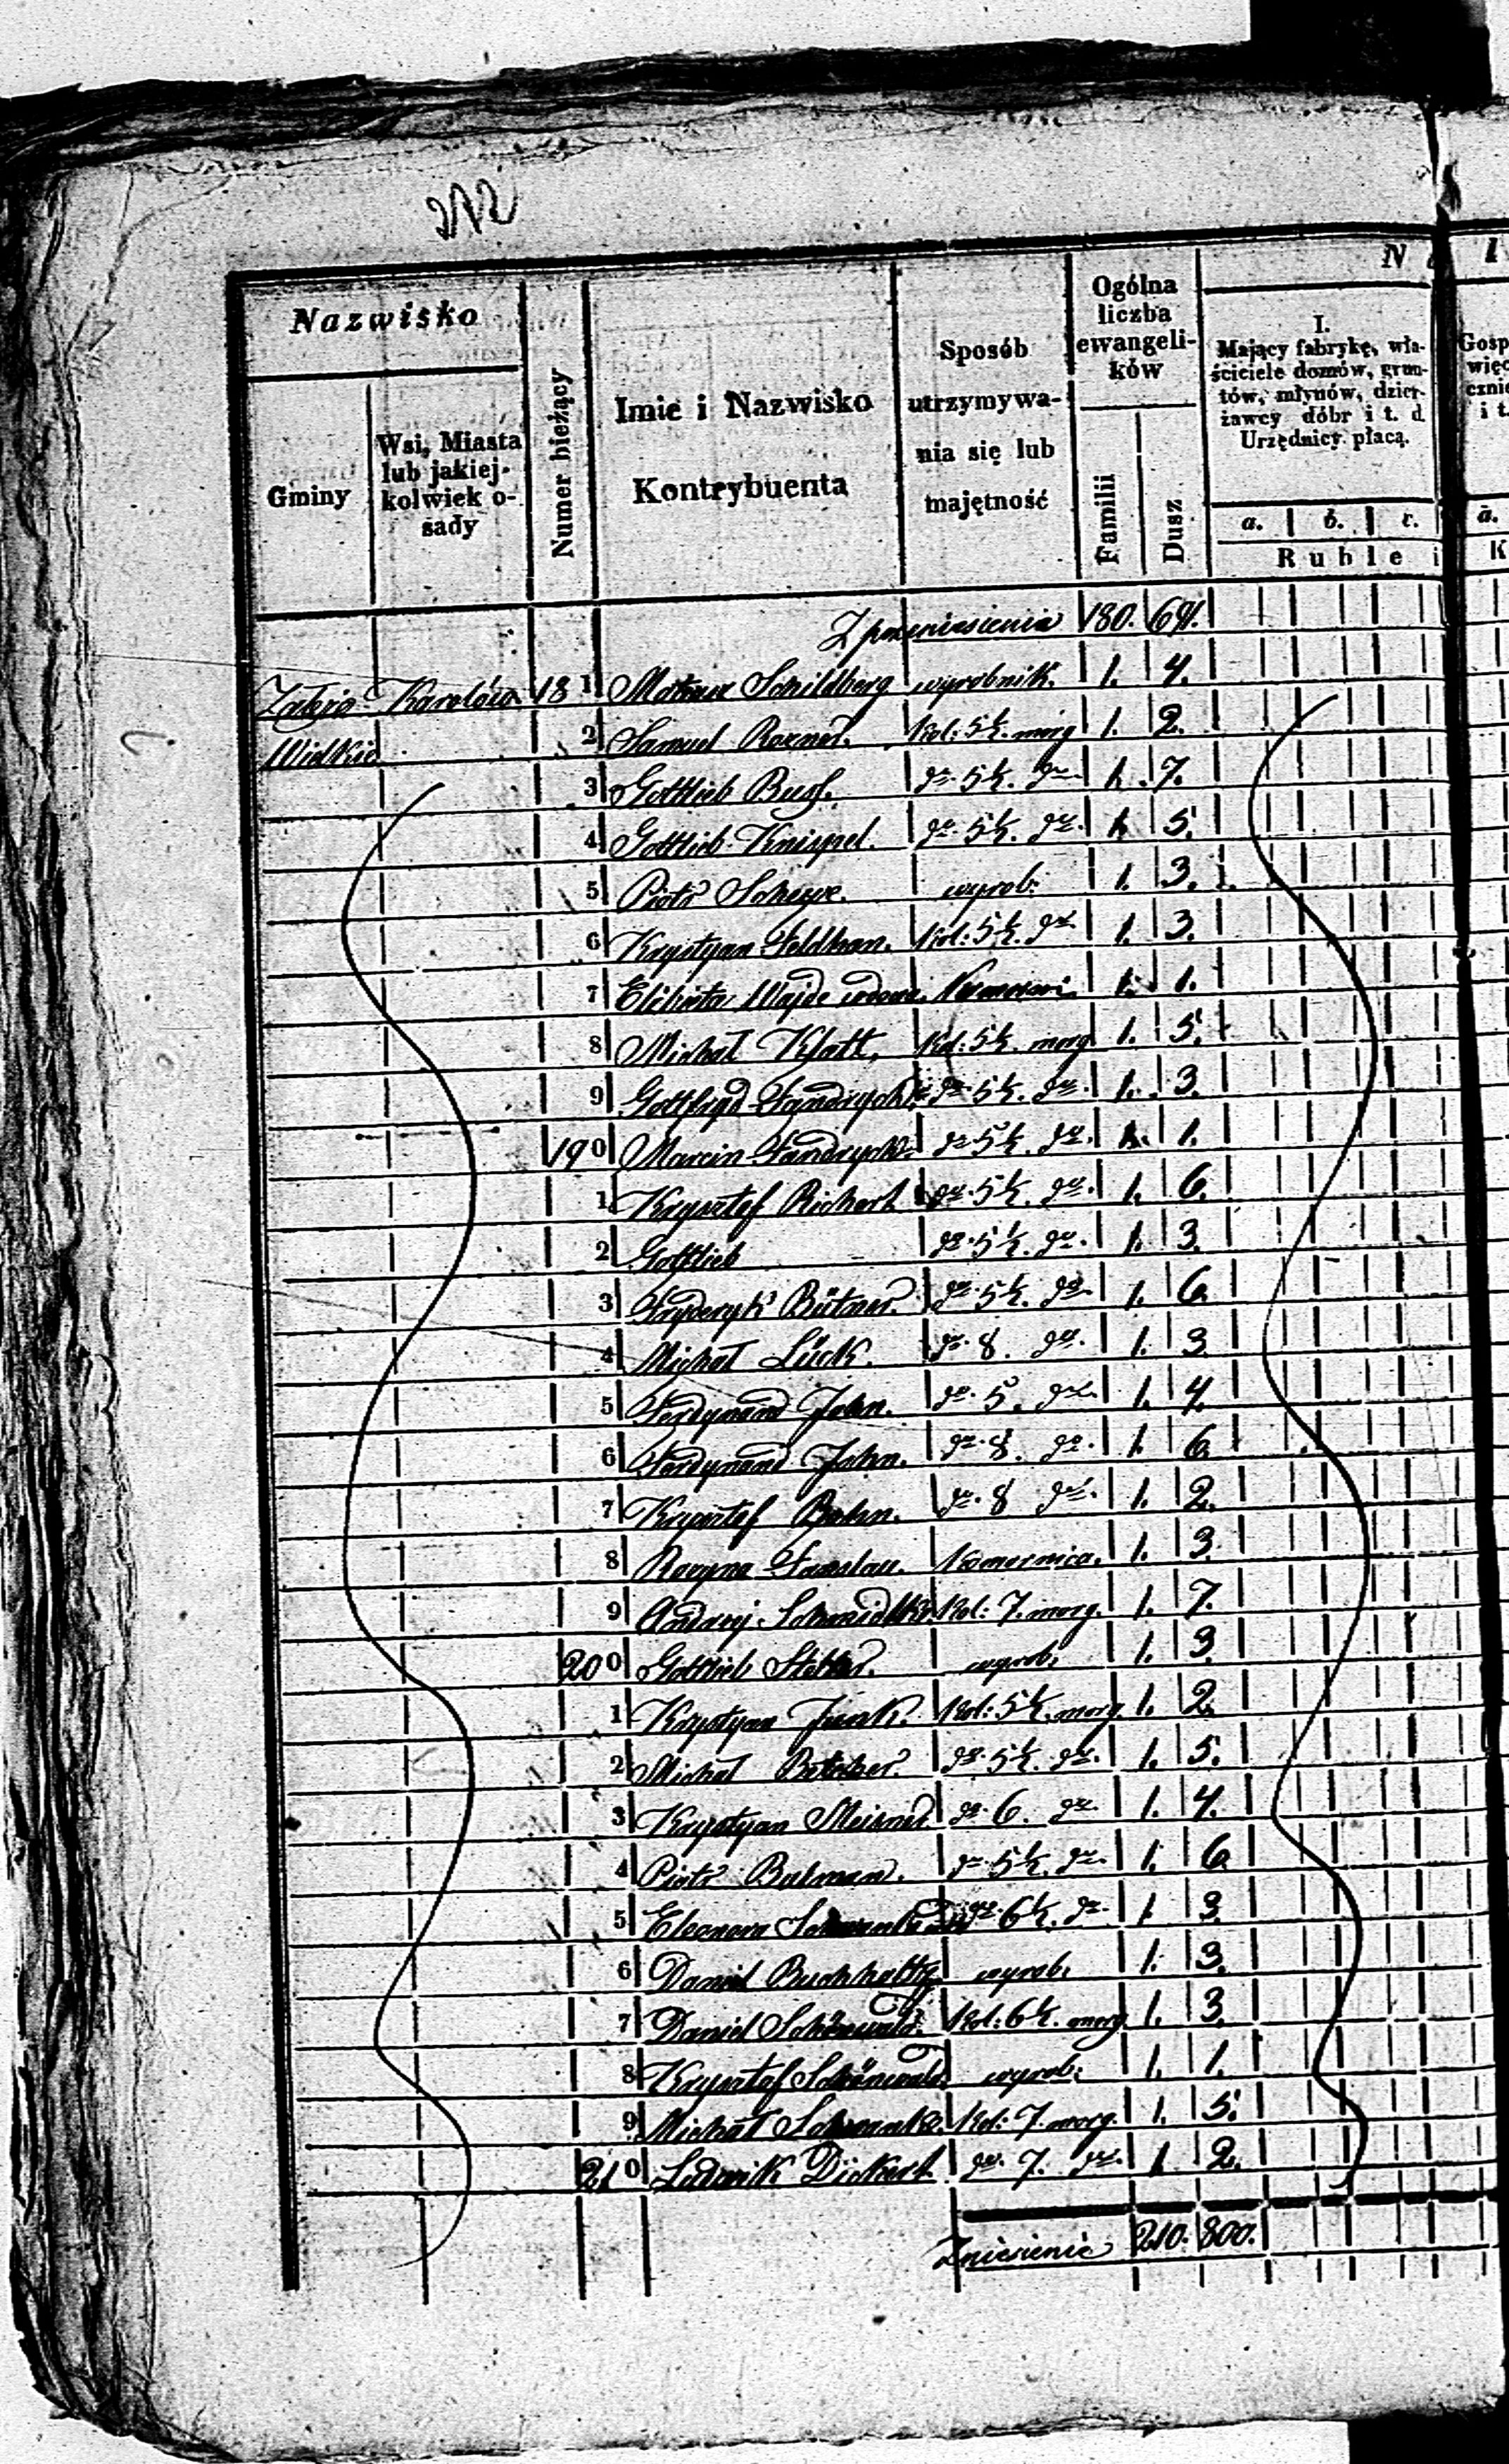 N
Nazwisko
Gminy
Wsi, Miasta lub jakiej-kolwiek o-sady
Numer bieżący
Imie i Nazwisko Kontrybuenta
Sposób utrzymywa-nia się lub majętność
Ogólna liczba ewangeli-ków
Familii
Dusz
I.
Mający fabrykę, wła-
ściciele domów, grun-
tów, młynów, dzier-
żawcy dóbr i t. d
Urzędnicy płacą.
a. b. c.
Ruble i
Z przeniesienia 180. 691.
Karolów 181 Schildberg wyrobnik. 1. 4.
Wielkie 2 Samuel 5½ morg 1. 2.
3 Gottlieb Buss. do 5½. do 1. 7.
4 Gottlieb Knispel. do 5½. do. 1. 5.
5 Piotr wyrob: 1. 3.
6 Krystyan Feldhan. Kol: 5½. do 1. 3.
7 Elżbieta Wajde wdowa. 1. 1.
8 Michał Klatt. Kol: 5½. morg 1. 5.
9 Gottfryd do 5½. do. 1. 3.
190 Marcin do 5½ do. 1. 1.
1 Krysztof Richert do. 5½. do. 1. 6.
2 Gottlieb do. 5½. do. 1. 3.
3 Fryderyk Bütner. do. 5½. do. 1. 6.
4 Michał Lück. do. 8. do. 1. 3.
5 Ferdynand John. do. 5. do. 1. 4.
6 Ferdynand John. do. 8. do. 1. 6.
7 Krysztof do. 8 do. 1. 2.
8 Komornica. 1. 3.
9 Andrzej Schmidtke Kol: 7. morg. 1. 7.
200 Gottlieb wyrob. 1. 3.
1 Krystyan Kol: 5½. morg. 1. 2.
2 Michał do. 5½. do. 1. 5.
3 Krystyan Meisner do. 6. do. 1. 4.
4 Piotr do 5½. do. 1. 6.
5 Eleonora do. 6½. do. 1. 3.
6 Daniel Buchholtz wyrob. 1. 3.
7 Daniel Schönwald. Kol: 6½. morg 1. 3.
8 Krysztof Schönwald. wyrob: 1. 1.
9 Michał Kol: 7. morg. 1. 5.
210 Ludwik Dickert. do. 7. do. 1. 2.
Zniesienie 210. 800.